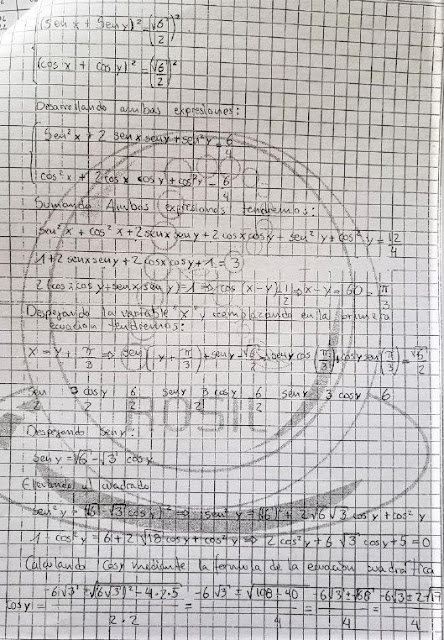 (Sen x + Sen y)² = (√6/2)²
(cos x + cos y)² = (√6/2)²
Desarrollando ambas expresiones:
Sen² x + 2 sen x sen y + sen² y = 6/4
cos² x + 2 cos x cos y + cos² y = 6/4
Sumando Ambas expresiones tendremos:
sen² x + cos² x + 2 sen x sen y + 2 cos x cos y + sen² y + cos² y = 12/4
1 + 2 sen x sen y + 2 cos x cos y + 1 = 3
2 (cos x cos y + sen x sen y) = 1 ⇒ cos (x - y) = 1/2 ⇒ x - y = 60 = π/3
Despejando la variable "x" y reemplazando en la primera
ecuacion tendremos:
x = y + π/3 ⇒ sen (y + π/3) + sen y = √6/2 sen y cos (π/3) + cos y sen (π/3) = √6/2
sen/2 3 cos y/2 6/2 sen y/2 3 cos y 6/2 sen y 3 cos y 6
ROSIL
Despejando sen y:
sen y = √6 - √3 cos y
Elevando al cuadrado
sen² y = (√6 - √3 cos y)² ⇒ sen² y = (√6)² + 2√6 √3 cos y + cos² y
1 - cos² y = 6 + 2 √18 cos y + cos² y ⇒ 2 cos² y + 6 √3 cos y + 5 = 0
Calculando cos y mediante la formula de la ecuacion cuadratica
cos y = (-6√3 ± √((6√3)² - 4·2·5))/(2·2) = (-6√3 ± √(108 - 40))/4 = (-6√3 ± √68)/4 = (-6√3 ± 2√17)/4